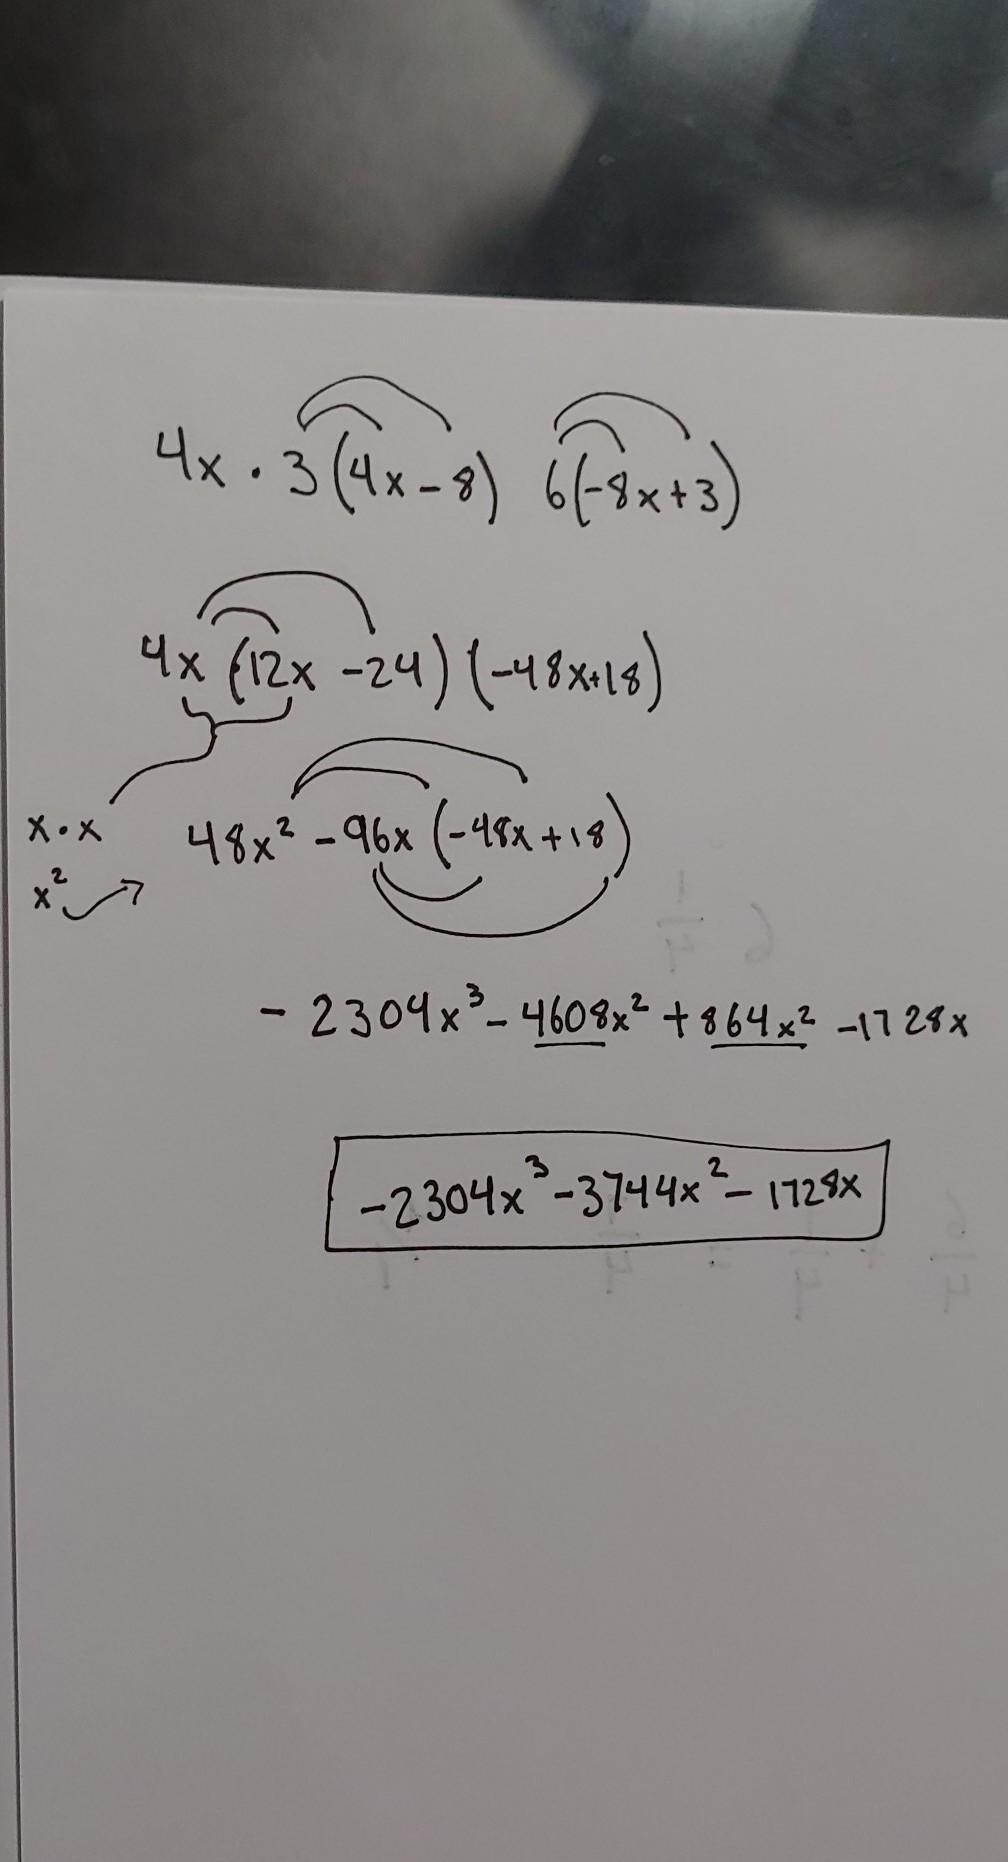 4x · 3(4x - 8) 6(-8x+3)
4x (12x - 24) (-48x+18)
x · x
48x² - 96x (-48x + 18)
x²
- 2304x³ - 4608x² + 864x² - 1728x
-2304x³ - 3744x² - 1728x